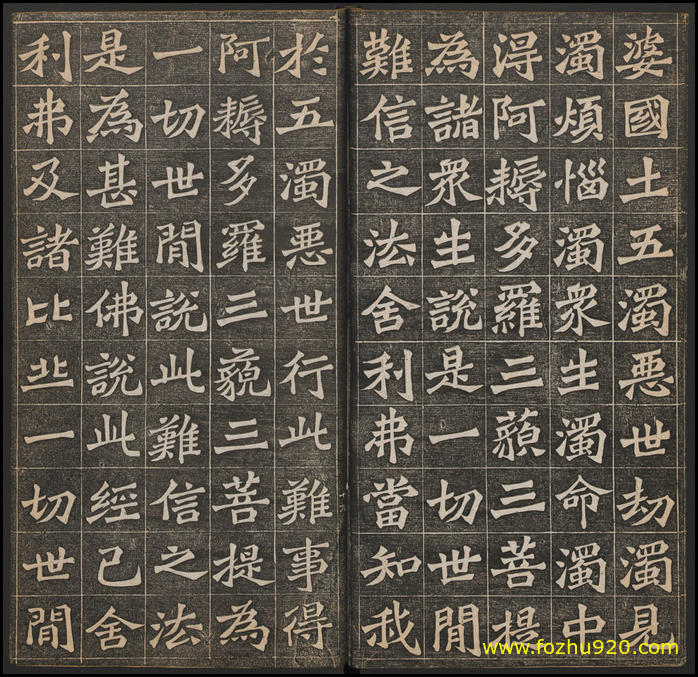 婆國土五濁悪世劫濁見
濁煩惱濁衆生濁命濁中
淂阿耨多羅三藐三菩提
為諸衆生說是一切世閒
難信之法舍利弗當知我
於五濁悪世行此難事得
阿耨多羅三藐三菩提為
一切世閒說此難信之法
是為甚難佛說此經已舍
利弗及諸比丘一切世閒
www.fozhu920.com